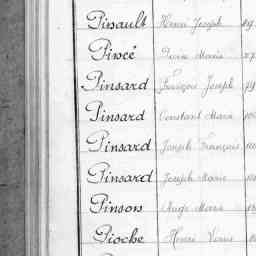 Pinault Henri Joseph
Pincé Pierre Marie
Pinsard François Joseph
Pinsard Constant Marie
Pinsard Joseph François
Pinsard Joseph Marie
Pinson Ange Marie
Pioche Henri